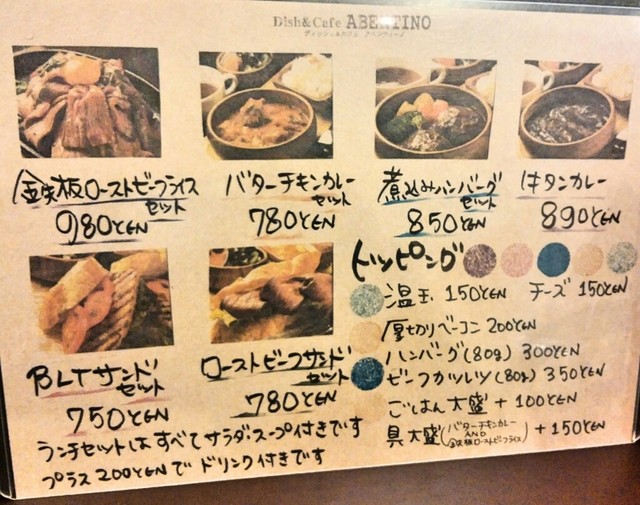 Dish&Cafe ABENTINO
ディッシュ&カフェ アベンティーノ
鉄板ローストビーフライス
セット
980YEN
バターチキンカレー
セット
780YEN
煮込みハンバーグ
セット
850YEN
牛タンカレー
890YEN
BLTサンド
セット
750YEN
ローストビーフサンド
セット
780YEN
トッピング
温玉 150YEN チーズ 150YEN
厚切りベーコン 200YEN
ハンバーグ(80g) 300YEN
ビーフカツレツ(80g) 350YEN
ごはん大盛 +100YEN
具大盛(バターチキンカレー AND 鉄板ローストビーフライス) +150YEN
ランチセットはすべてサラダ・スープ付きです
プラス200YENでドリンク付きです